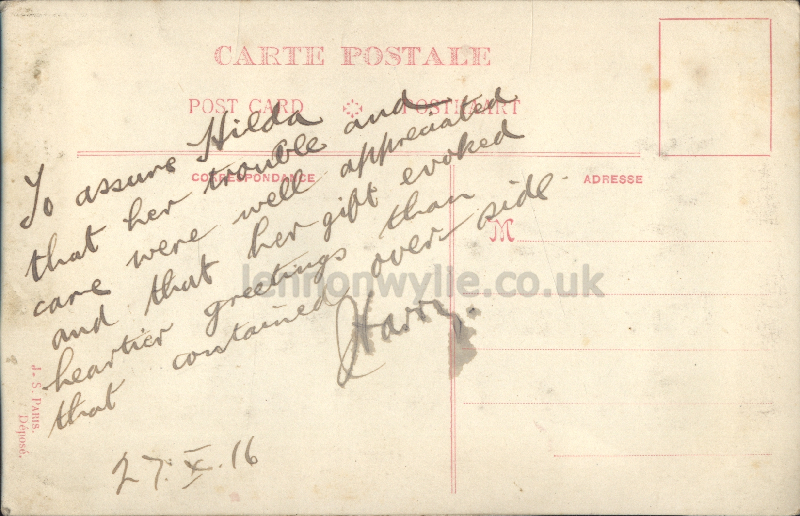 CARTE POSTALE
POST CARD POSTKAART
CORRESPONDANCE
ADRESSE
To assure Hilda
that her trouble and
care were well appreciated
and that her gift evoked
heartier greetings than
that contained over-side.
Harry.
27.X.16
M
J. S. PARIS.
Déposé.
lennonwylie.co.uk